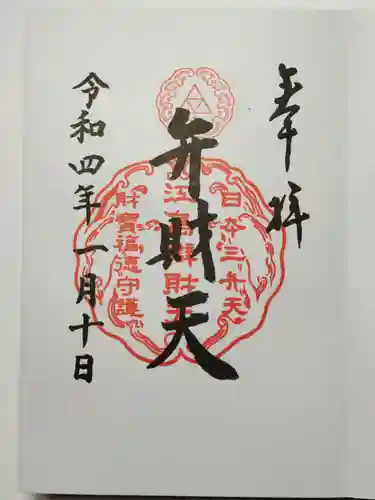 奉拝
弁財天
日本三弁天
江島弁財天
財寳福徳守護
令和四年一月十日